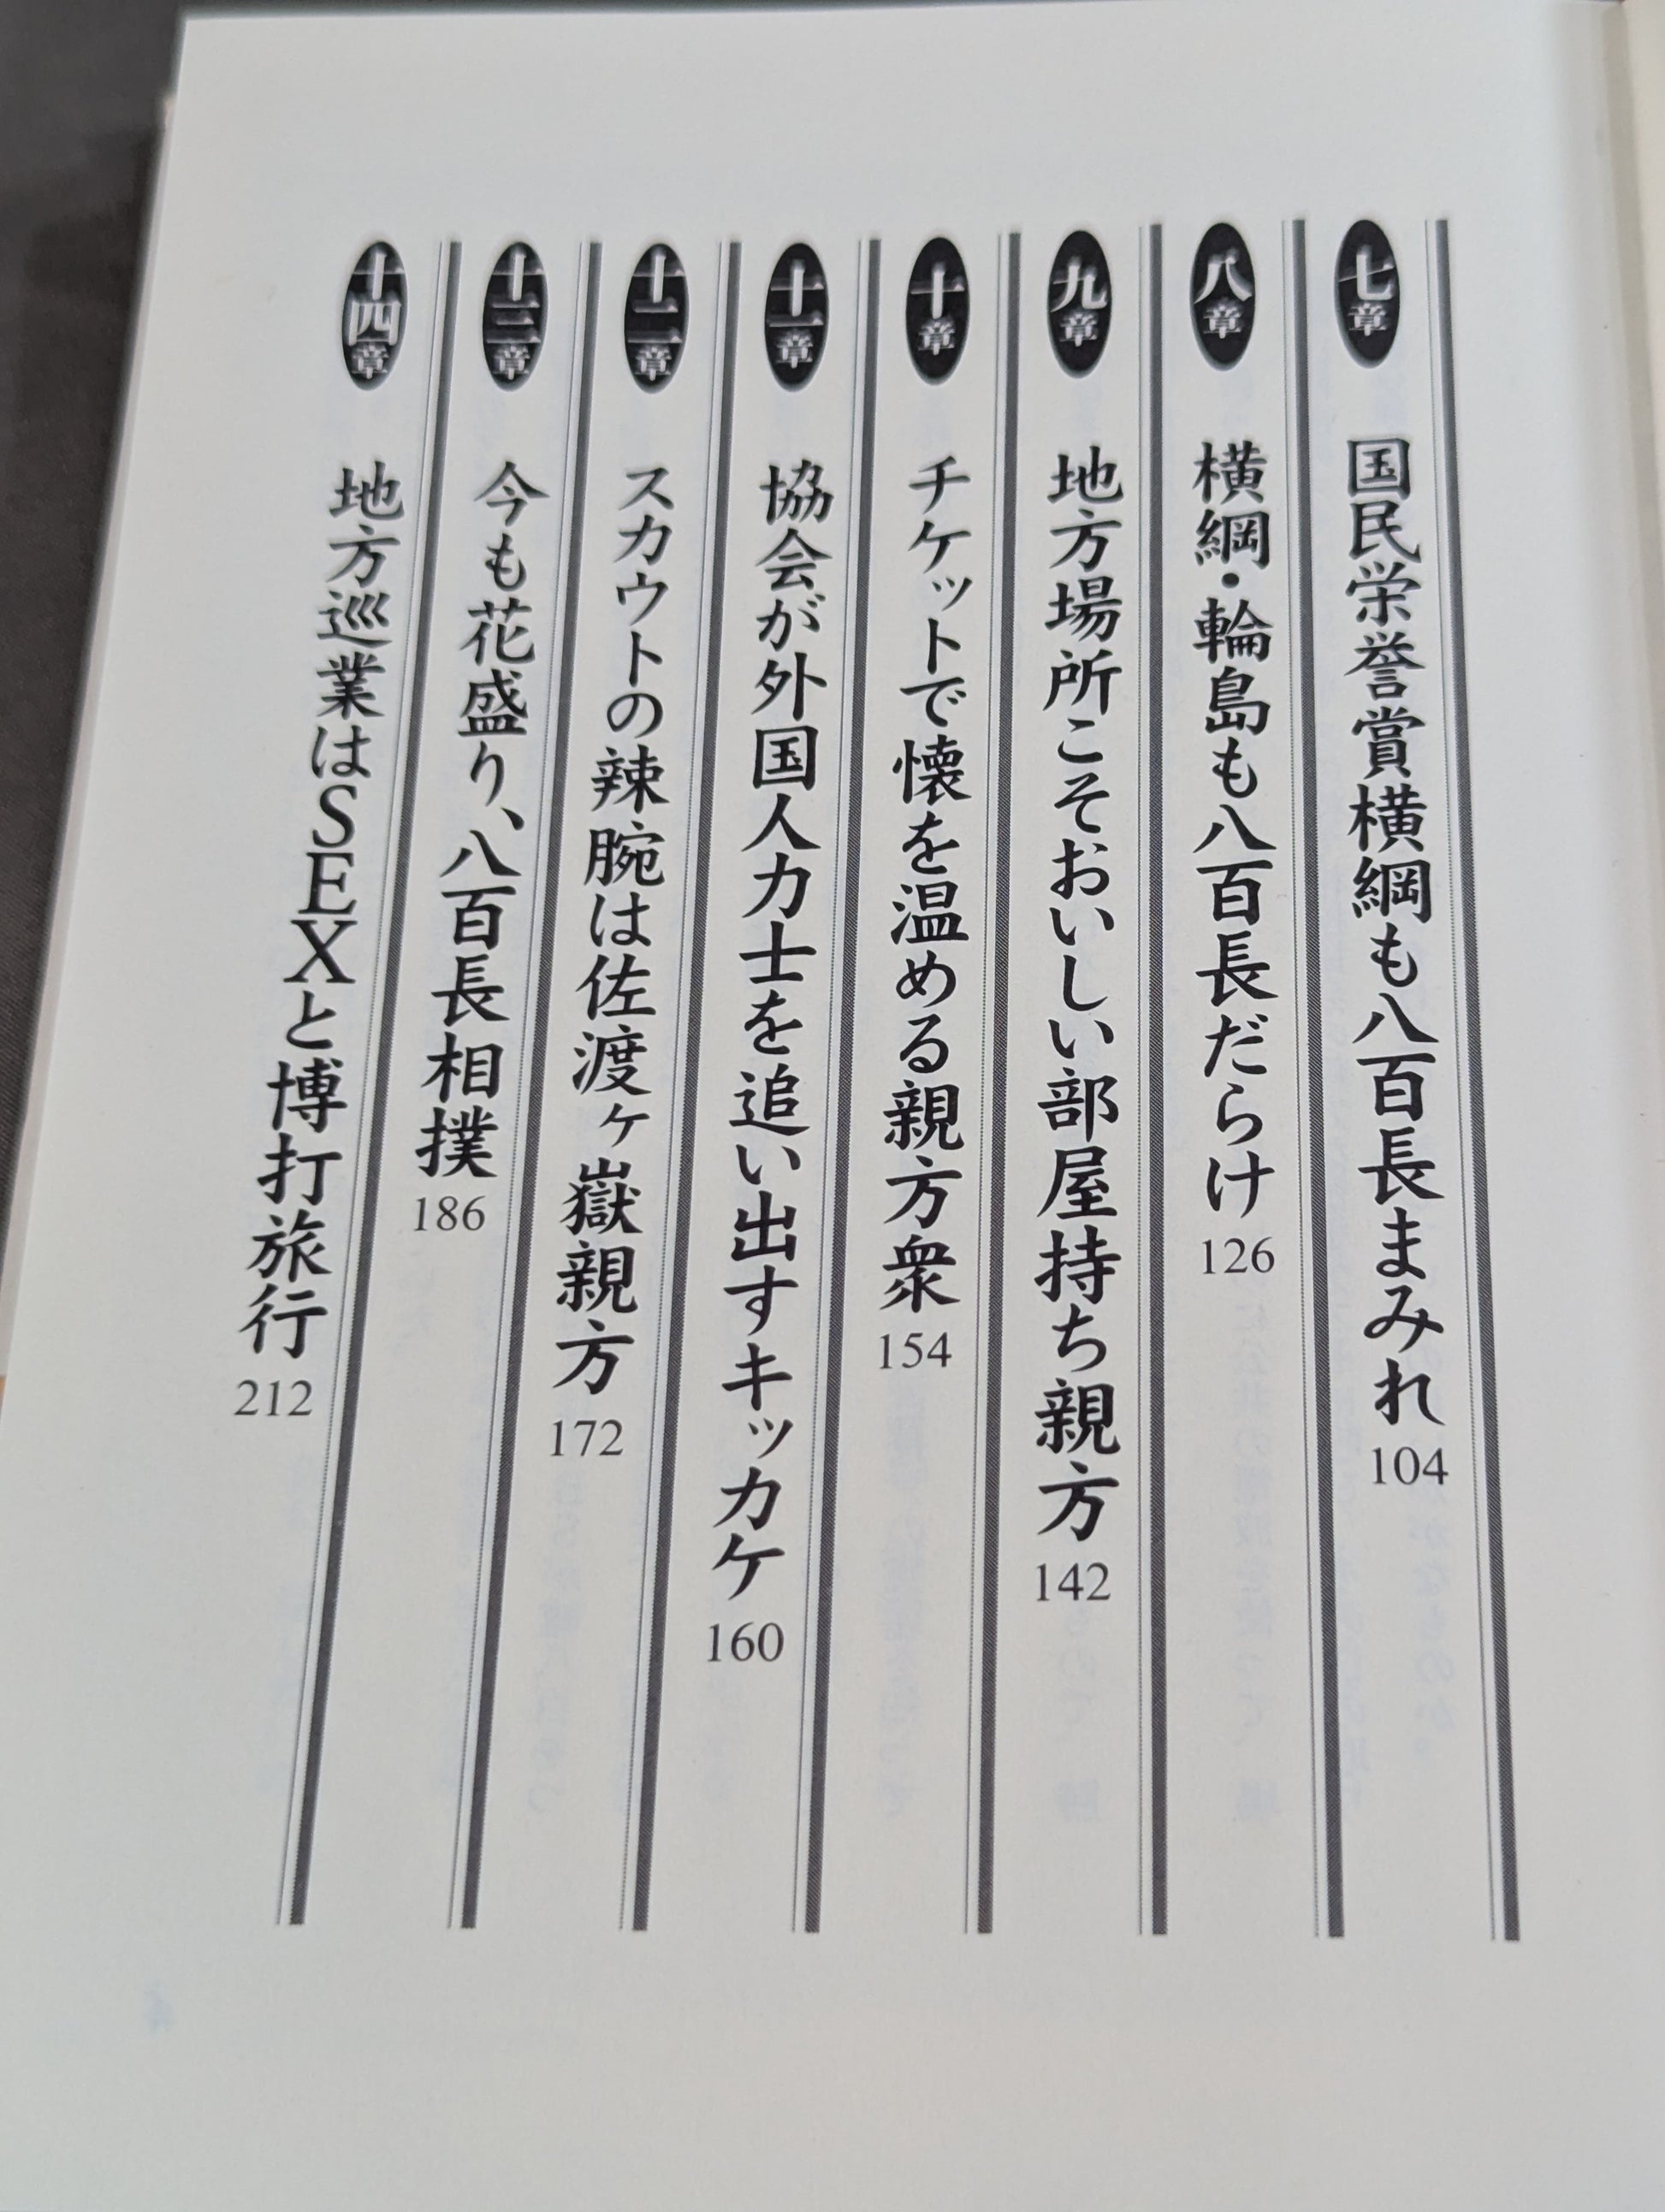 七章 国民栄誉賞横綱も八百長まみれ 104
八章 横綱・輪島も八百長だらけ 126
九章 地方場所こそおいしい部屋持ち親方 142
十章 チケットで懐を温める親方衆 154
十一章 協会が外国人力士を追い出すキッカケ 160
十二章 スカウトの辣腕は佐渡ヶ嶽親方 172
十三章 今も花盛り、八百長相撲 186
十四章 地方巡業はSEXと博打旅行 212